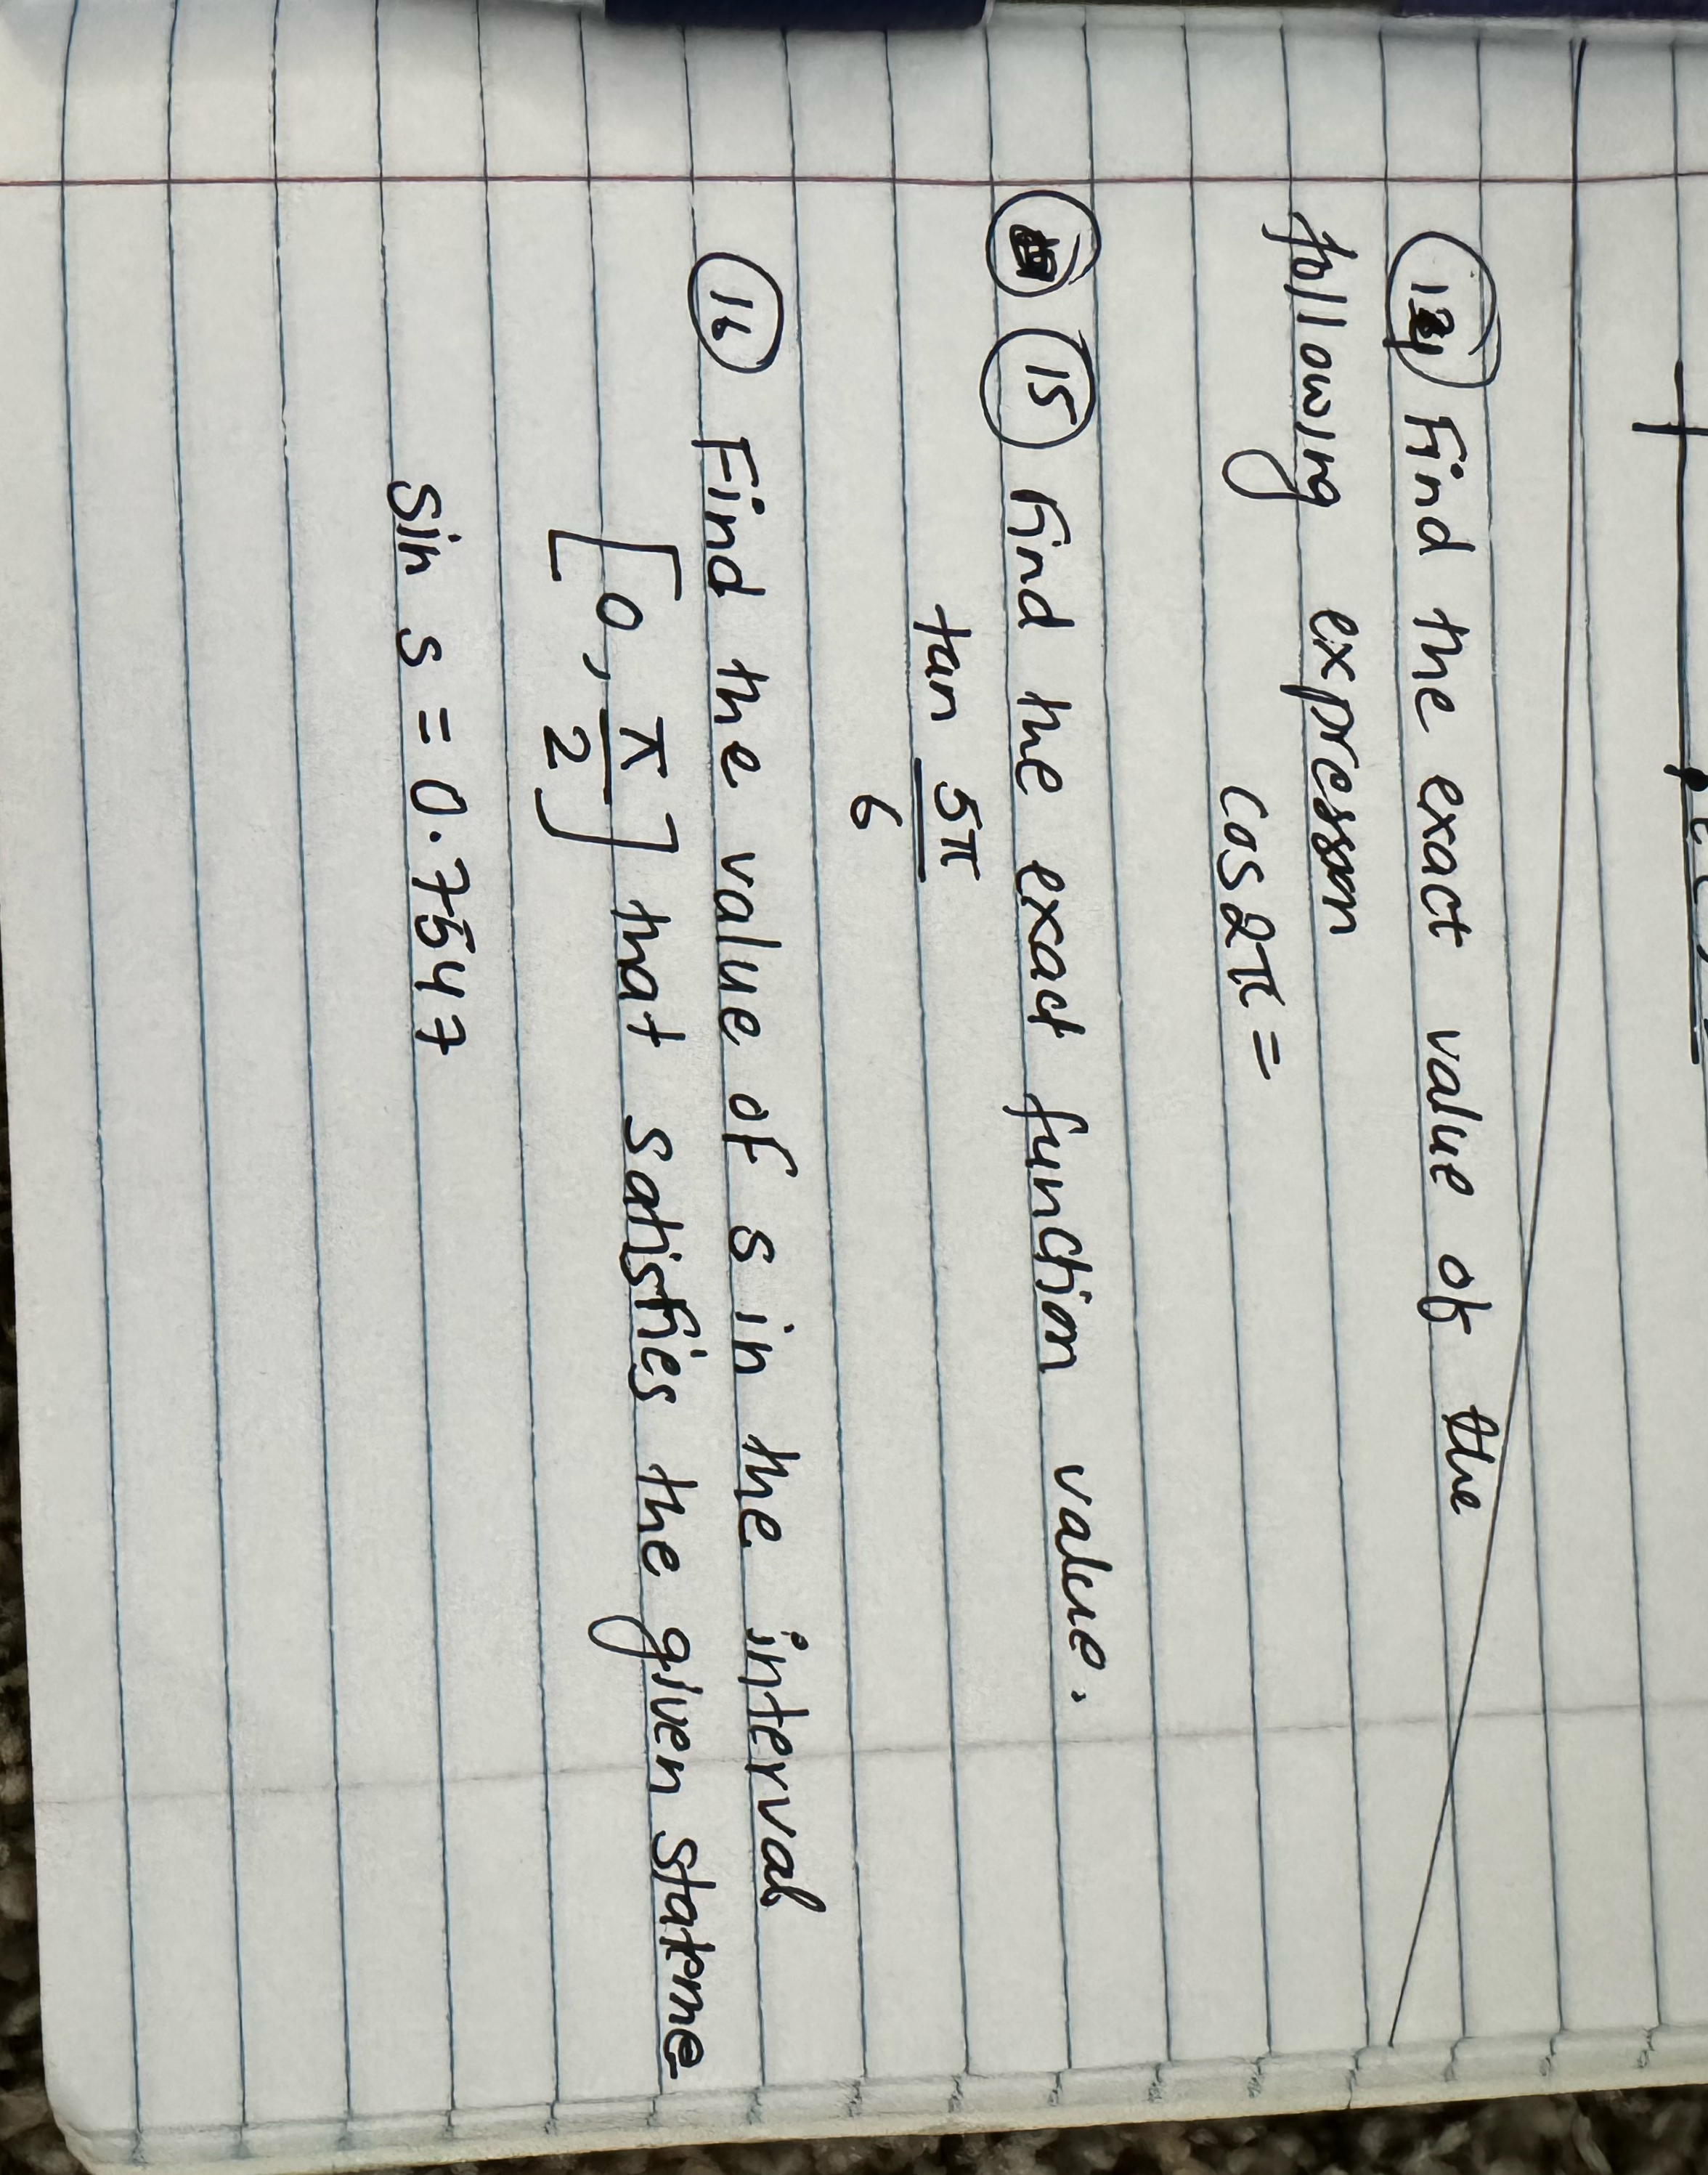 14 Find the exact value of the
following expression
cos 2π =
15 Find the exact function value.
tan 5π
6
16 Find the value of s in the interval
[0, π/2] that satisfies the given stateme
sin s = 0.7547